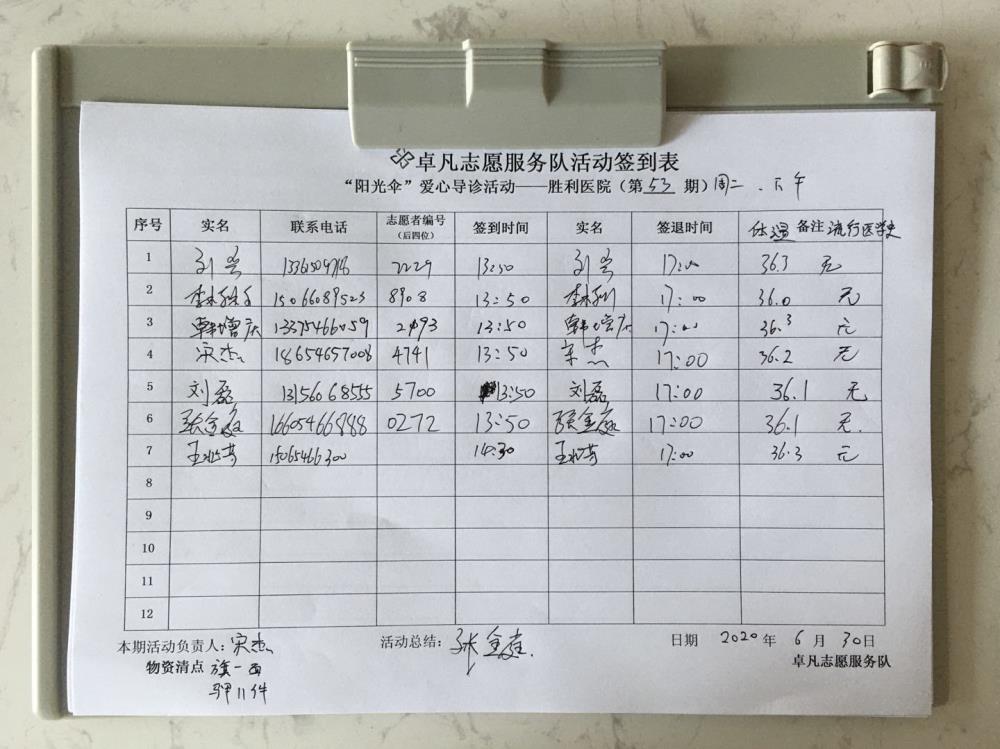 卓凡志愿服务队活动签到表
“阳光伞”爱心导诊活动——胜利医院（第 53 期）周二．下午
序号 实名 联系电话 志愿者编号（后四位） 签到时间 实名 签退时间 体温 备注 流行医学史
1 刘 2229 13:50 刘 17:00 36.3 无
2 李 15066089523 8908 13:50 李 17:00 36.0 无
3 韩增庆 13375466059 2493 13:50 韩增庆 17:00 36.3 无
4 宋杰 18654657008 4741 13:50 宋杰 17:00 36.2 无
5 刘磊 13156068555 5700 13:50 刘磊 17:00 36.1 无
6 张金庭 16605466888 0272 13:50 张金庭 17:00 36.1 无.
7 王 15065466300 14:30 王 17:00 36.3 无
8
9
10
11
12
本期活动负责人：宋杰 活动总结：张金庭. 日期 2020 年 6 月 30 日
物资清点 旗一面 卓凡志愿服务队
马甲11件